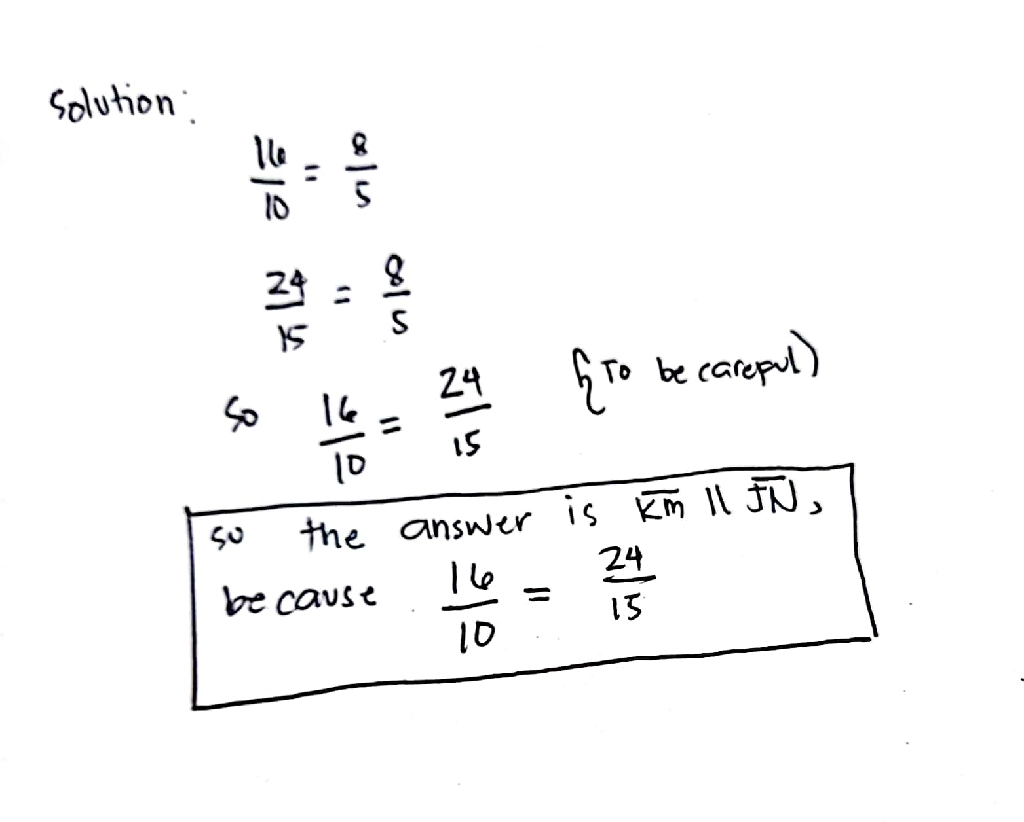 Solution:
16/10 = 8/5
24/15 = 8/5
So 16/10 = 24/15 {To be carepul)
so the answer is K̅m̅ || J̅N̅,
because 16/10 = 24/15